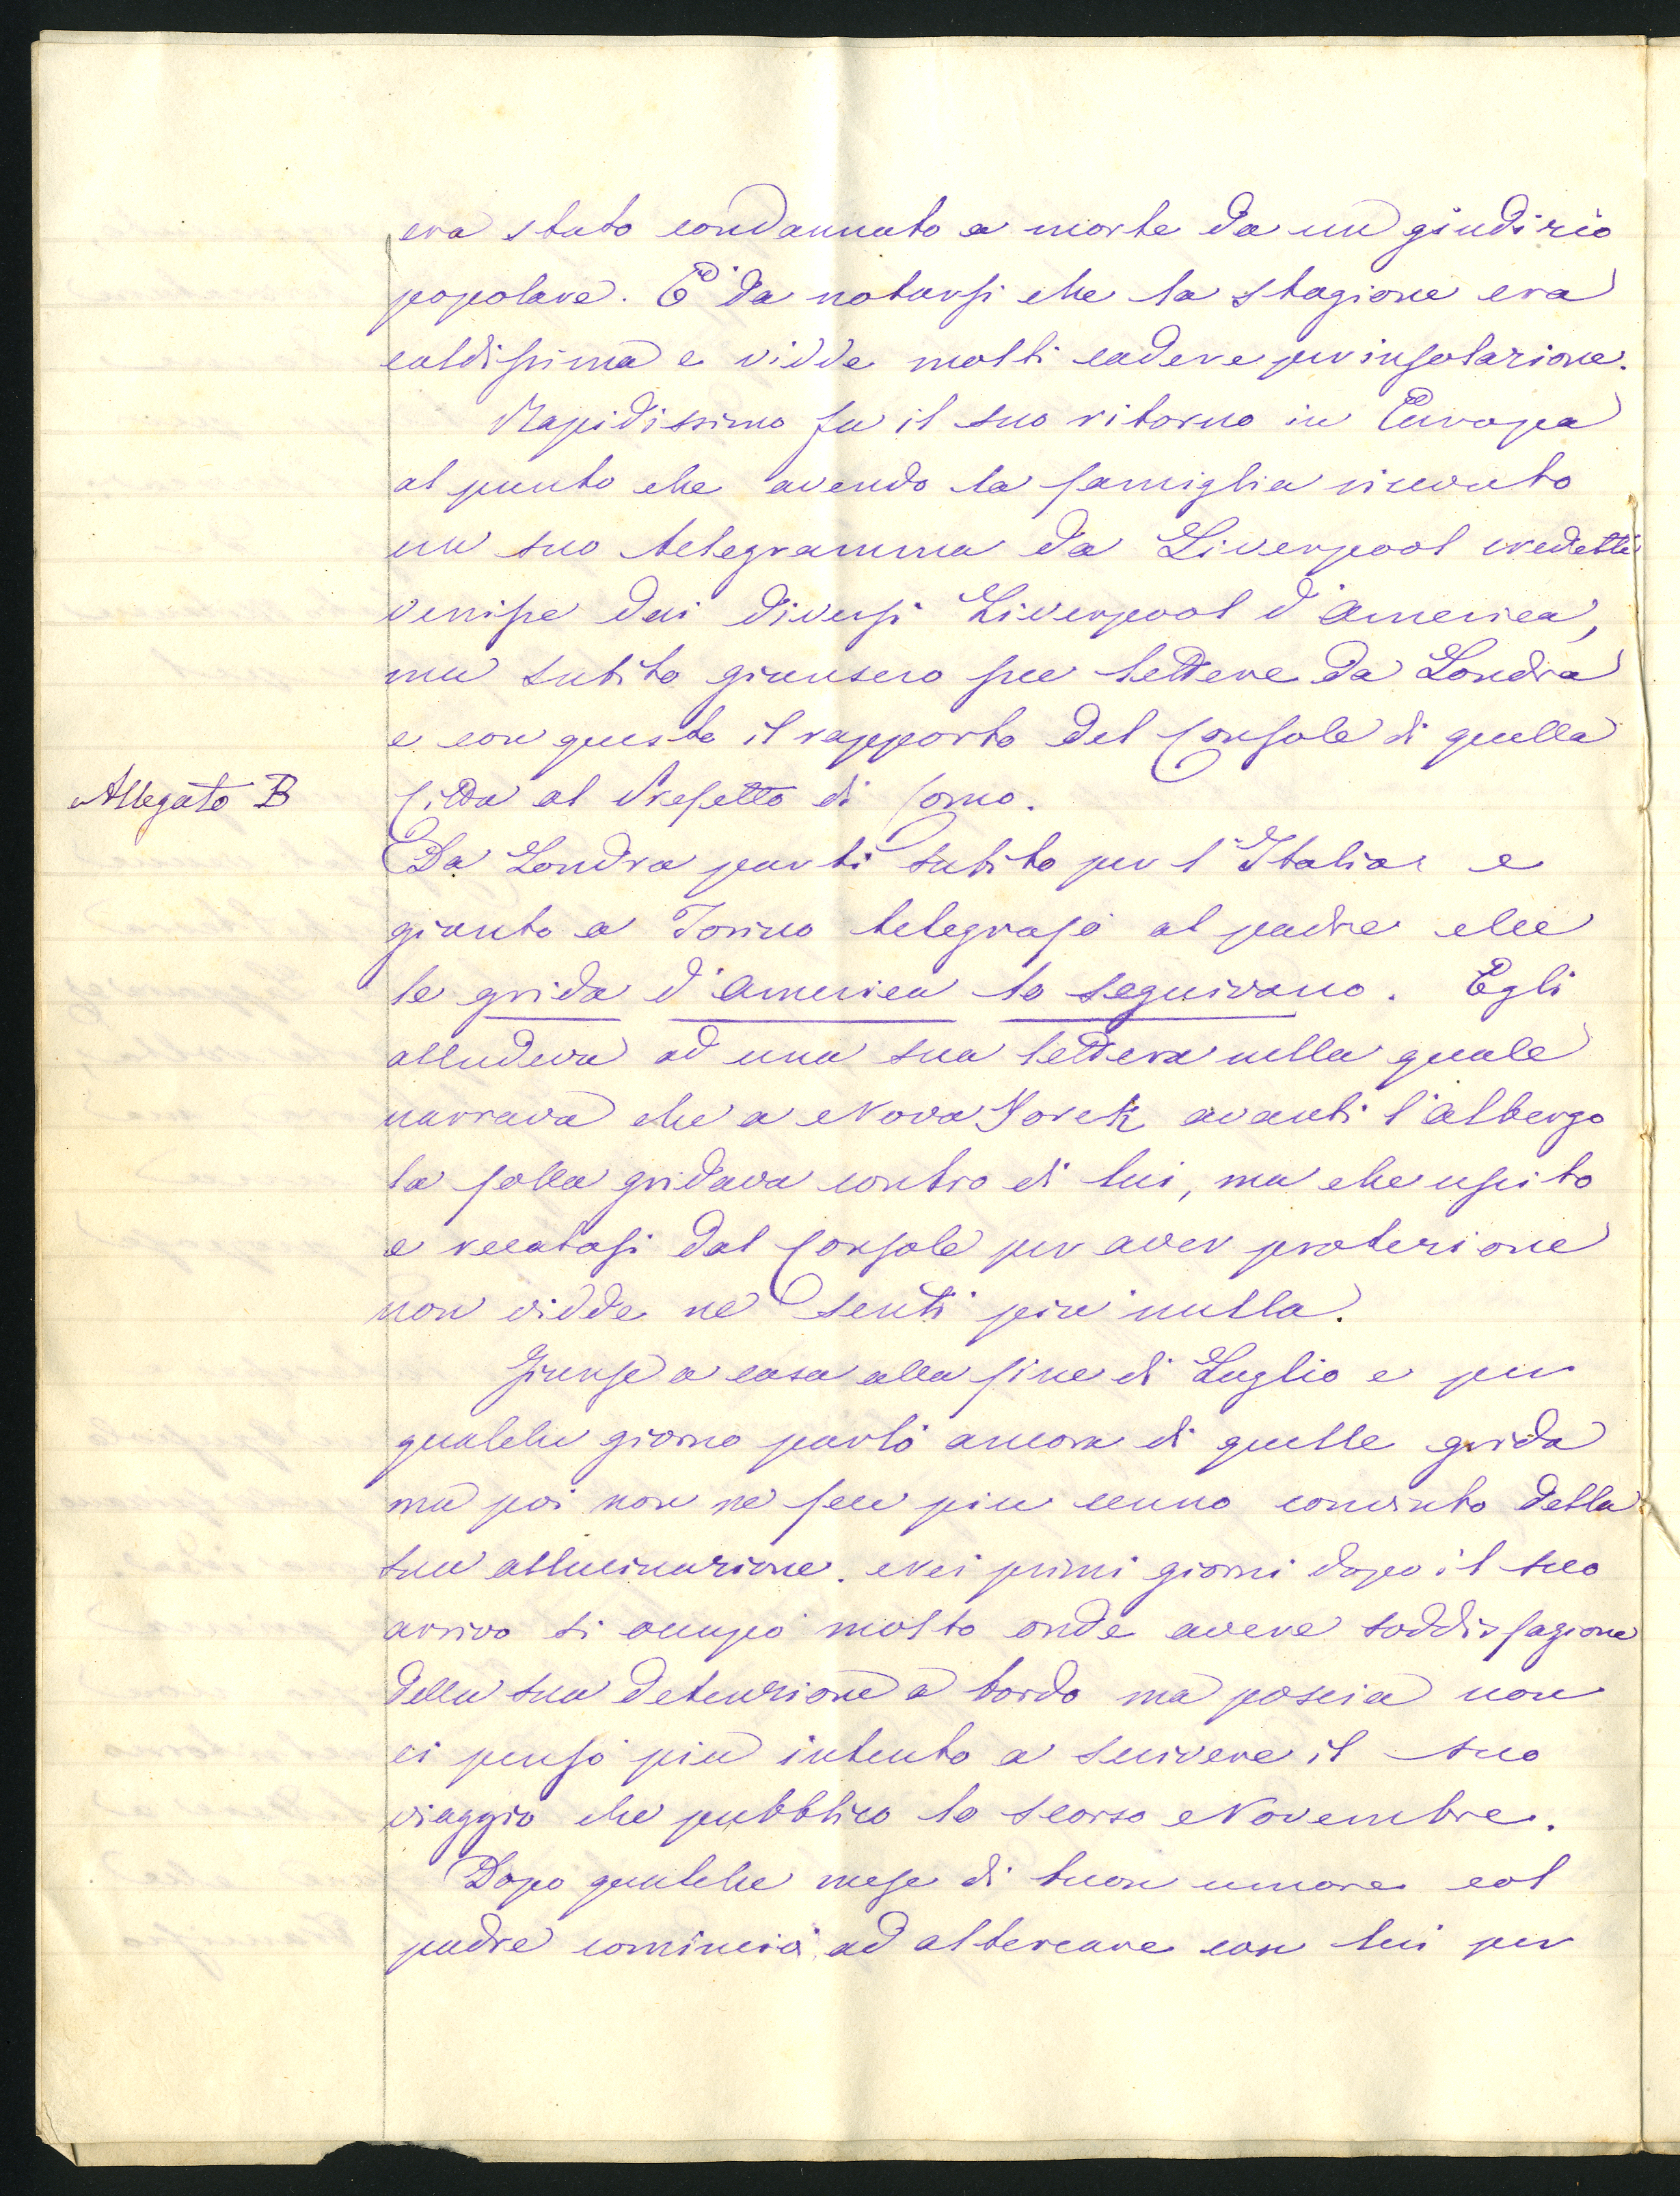 era stato condannato a morte da un giudizio
popolare. È da notarsi che la stagione era
caldissima e vidde molti cadere per insolazione.
Rapidissimo fu il suo ritorno in Europa
al punto che avendo la famiglia ricevuto
un suo telegramma da Liverpool credette
venisse dai diversi Liverpool d'America,
ma subito giunsero sue lettere da Londra
e con queste il rapporto del Console di quella
Allegato B
Città al Prefetto di Como.
Da Londra partì subito per l'Italia e
giunto a Torino telegrafò al padre che
le grida d'America lo seguivano. Egli
alludeva ad una sua lettera nella quale
narrava che a Nova Yorck avanti l'albergo
la folla gridava contro di lui, ma che uscito
e recatosi dal Console per aver protezione
non vidde nè sentì più nulla.
Giunse a casa alla fine di Luglio e per
qualche giorno parlò ancora di quelle grida
ma poi non ne fece più cenno convinto della
sua allucinazione. Nei primi giorni dopo il suo
arrivo si occupò molto onde avere soddisfazione
della sua detenzione a bordo ma poscia non
ci pensò più intento a scrivere il suo
viaggio che pubblicò lo scorso Novembre.
Dopo qualche mese di buon umore col
padre cominciò ad altercare con lui per